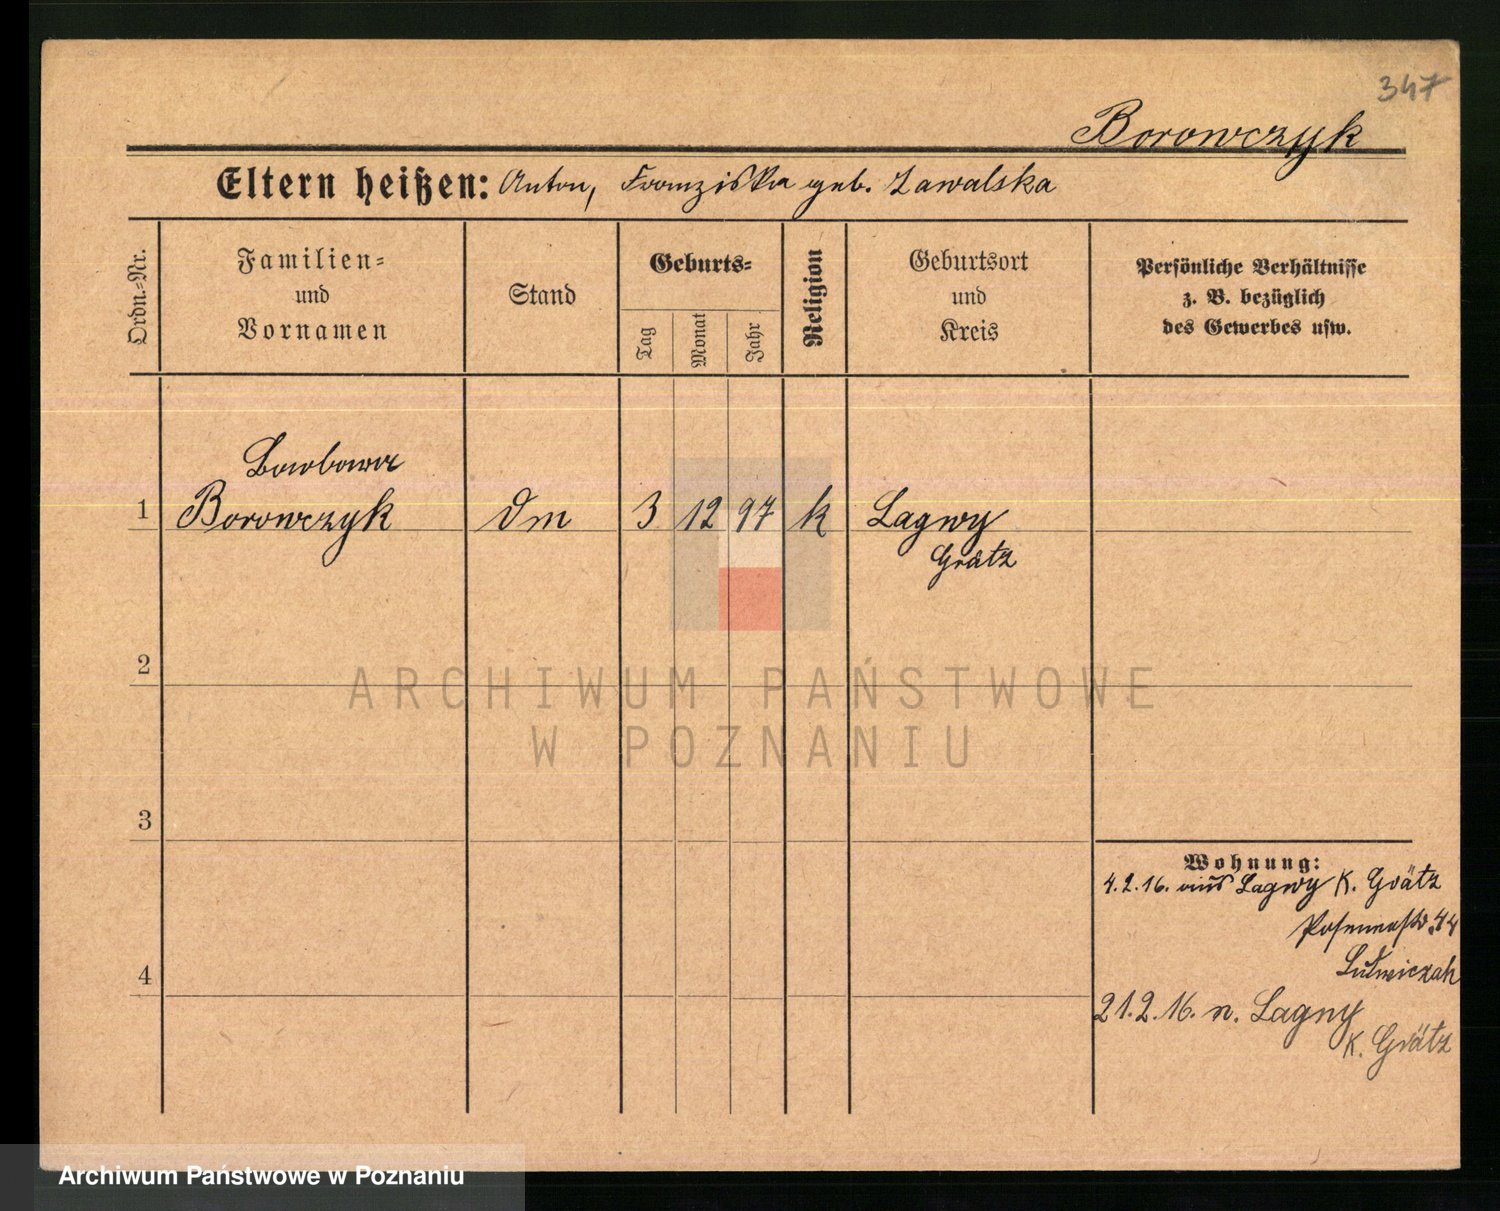 347
Borowczyk
Eltern heißen: Anton, Franziska geb. Zawalska
Ordn.-Nr.
Familien-
und
Vornamen
Stand
Geburts-
Tag
Monat
Jahr
Religion
Geburtsort
und
Kreis
Persönliche Verhältnisse
z. B. bezüglich
des Gewerbes usw.
Barbara
1 Borowczyk Dm 3 12 97 k Lagwy
Grätz
2
ARCHIWUM PAŃSTWOWE
W POZNANIU
3
Wohnung:
4.2.16. aus Lagwy K. Grätz
44
4
21.2.16. n. Lagwy
K. Grätz
Archiwum Państwowe w Poznaniu